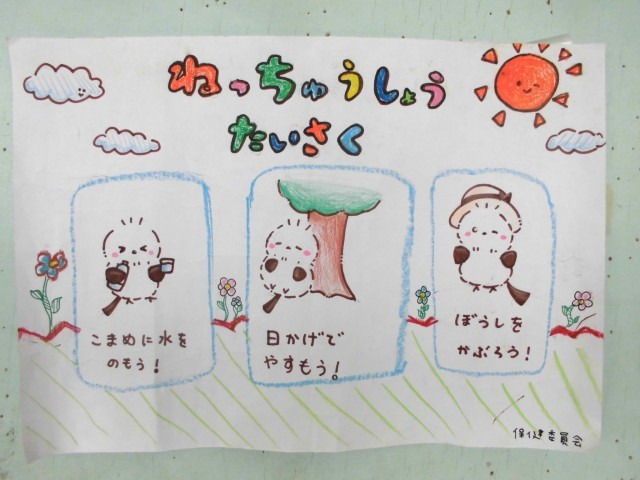 ねっちゅうしょう
たいさく
こまめに水を
のもう！
日かげで
やすもう！
ぼうしを
かぶろう！
保健委員会